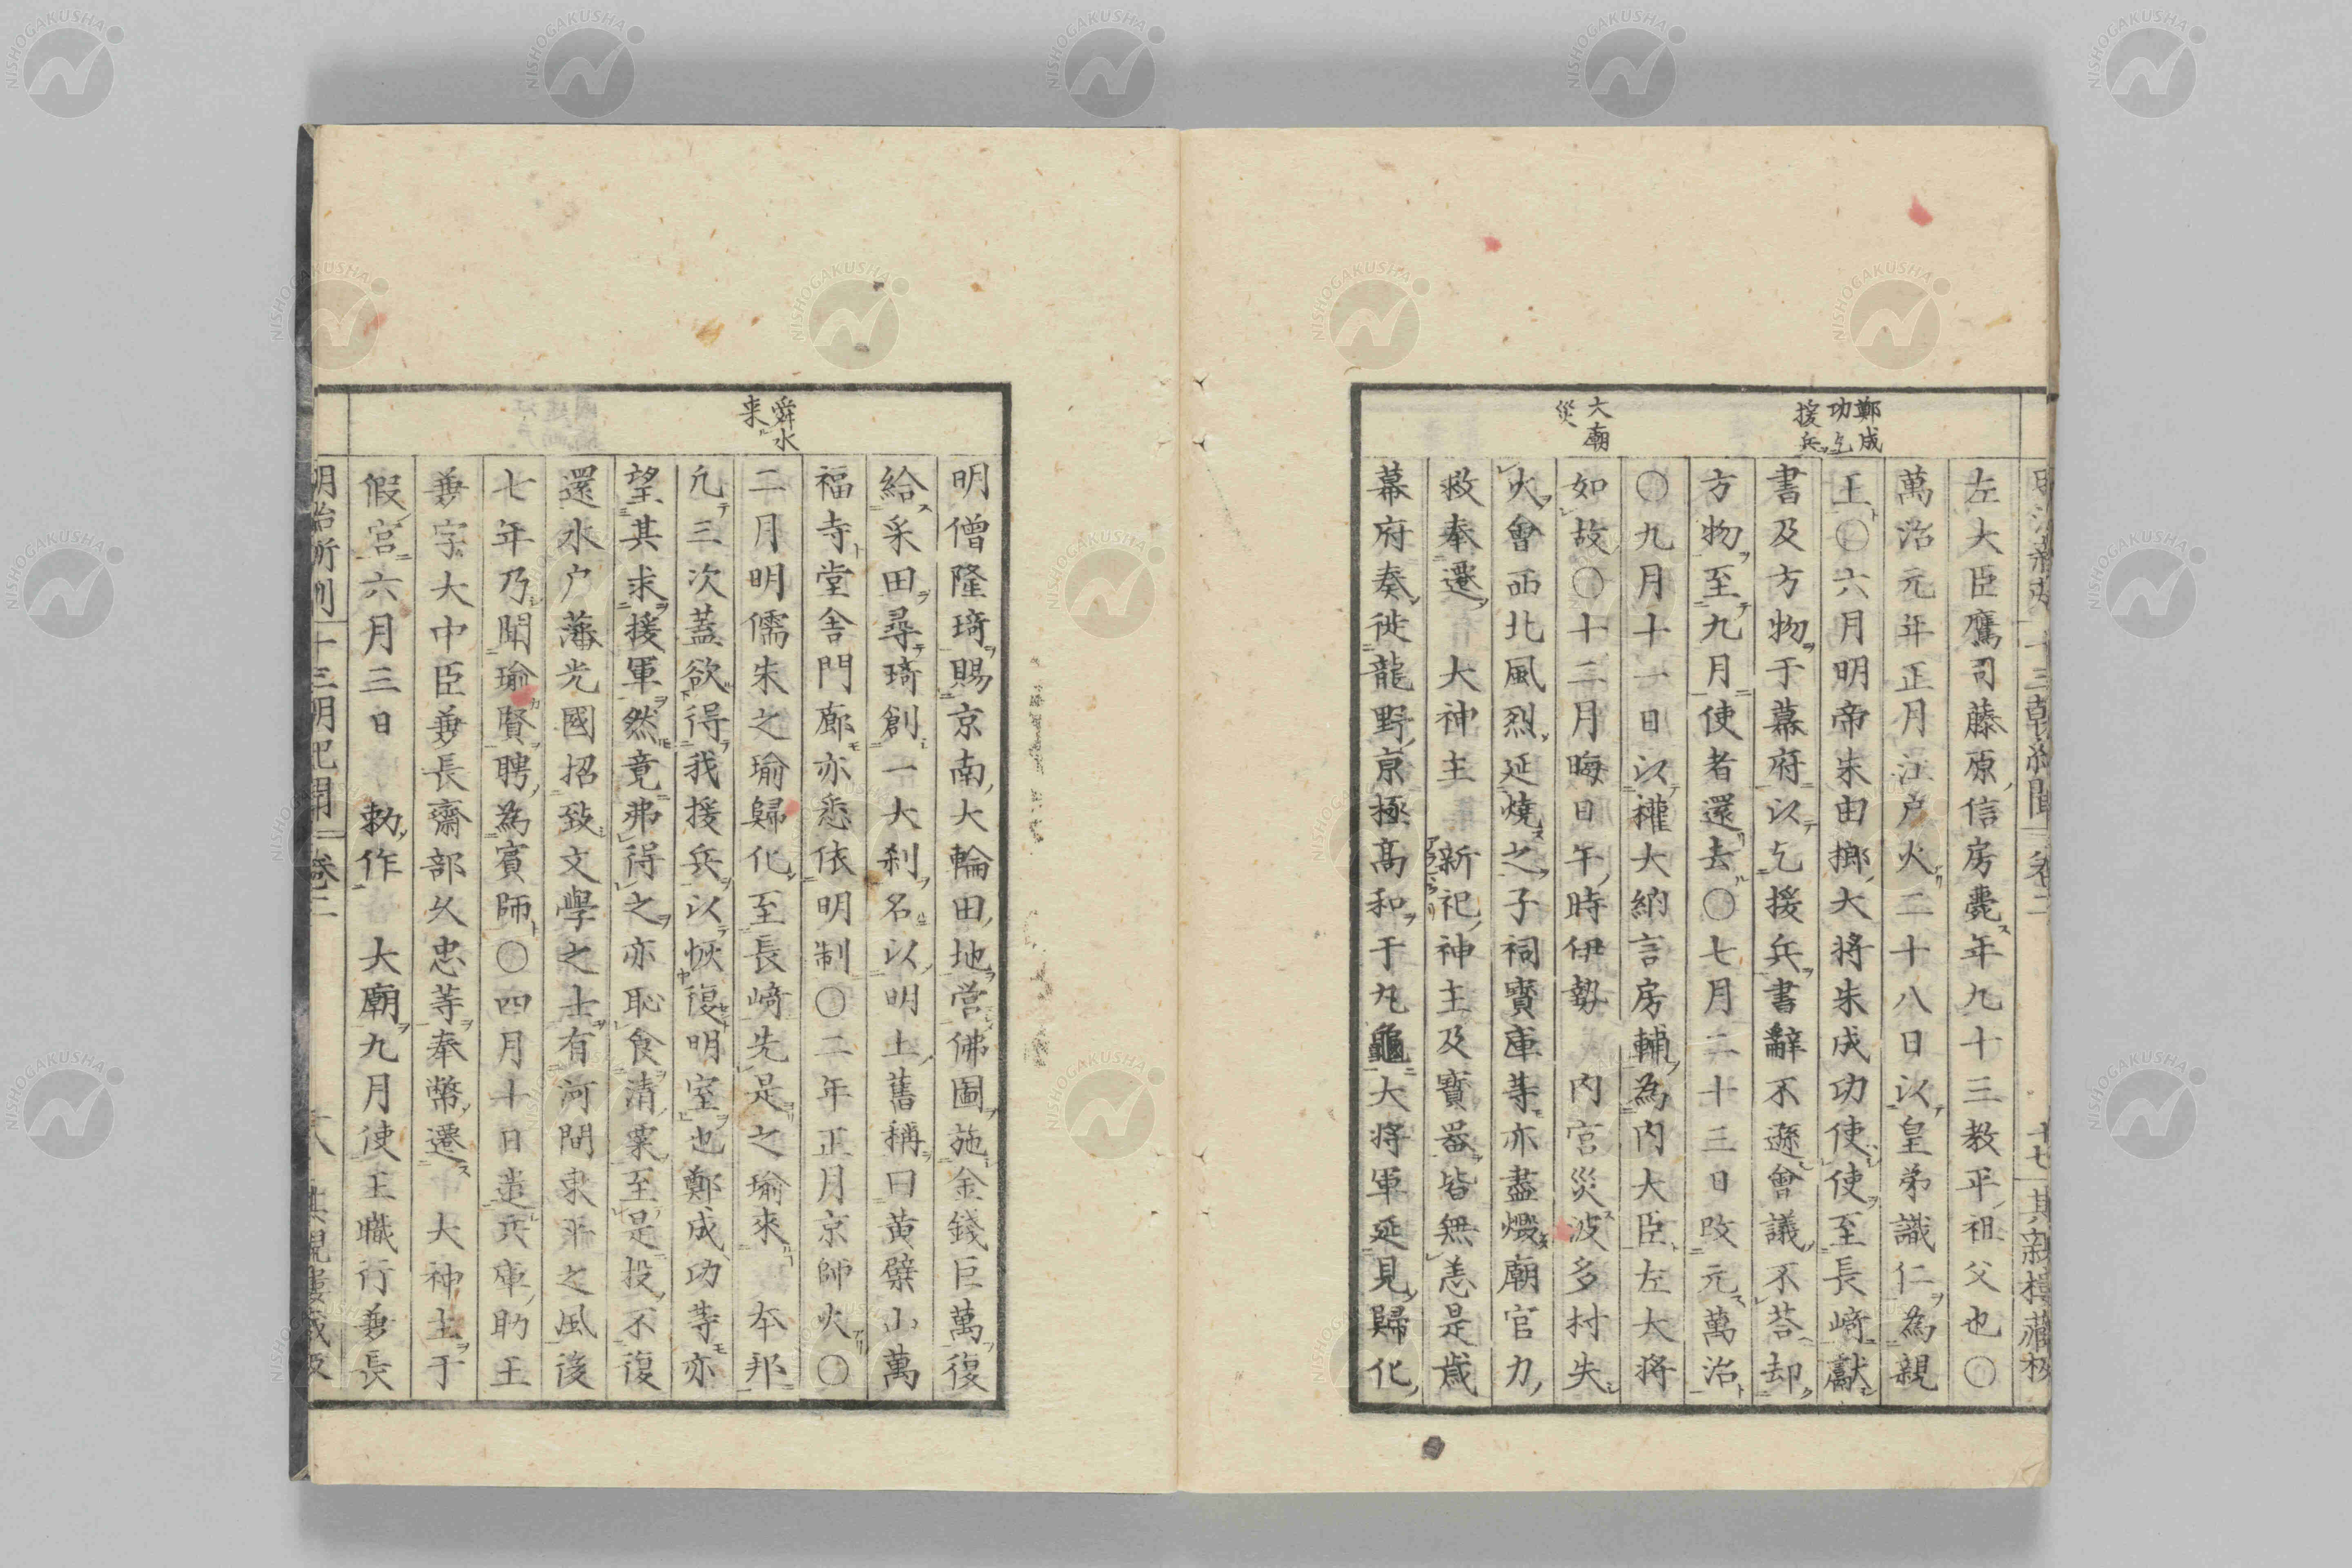 鄭成
功乞
援兵
大廟
災
左大臣鷹司藤原信房薨年九十三教平祖父也○
萬治元年正月江戸火二十八日以皇弟識仁為親
王○六月明帝朱由榔大将朱成功使使至長﨑獻
書及方物于幕府以乞援兵書辭不遜會議不荅却
方物至九月使者還去○七月二十三日改元萬治
○九月十一日以權大納言房輔為内大臣左大将
如故○十二月晦日午時伊勢 内宮災波多村失
火會西北風烈延燒之子祠寳庫等亦盡燬廟官力
救奉遷 大神主新祀神主及寶器皆無恙是歳
幕府奏徙龍野京極髙和于丸龜大将軍延見歸化
舜水
来
明僧隆琦賜京南大輪田地営佛圖施金錢巨萬復
給采田尋琦創一大刹名以明土舊稱曰黄檗山萬
福寺堂舎門廊亦悉依明制○二年正月京師火○
二月明儒朱之瑜歸化至長﨑先是之瑜來 本邦
凢三次蓋欲得我援兵以恢復明室也鄭成功等亦
望其求援軍然竟弗得之亦恥食清粟至是投不復
還水户藩光國招致文學之士有河間東平之風後
七年乃聞瑜賢聘為賓師○四月十日造兵庫助王
兼字大中臣兼長齋部久忠等奉幣遷 大神主于
假宮六月三日 勅作 大廟九月使王職行兼長
明治新刻十三朝紀聞 卷二 十八 其親樓蔵板